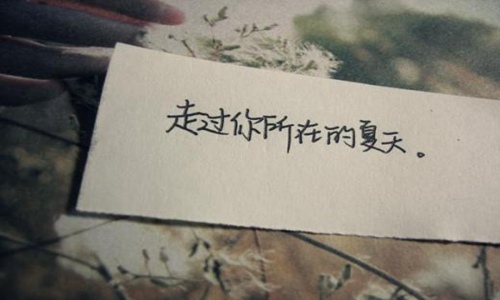 走过你所在的夏天。